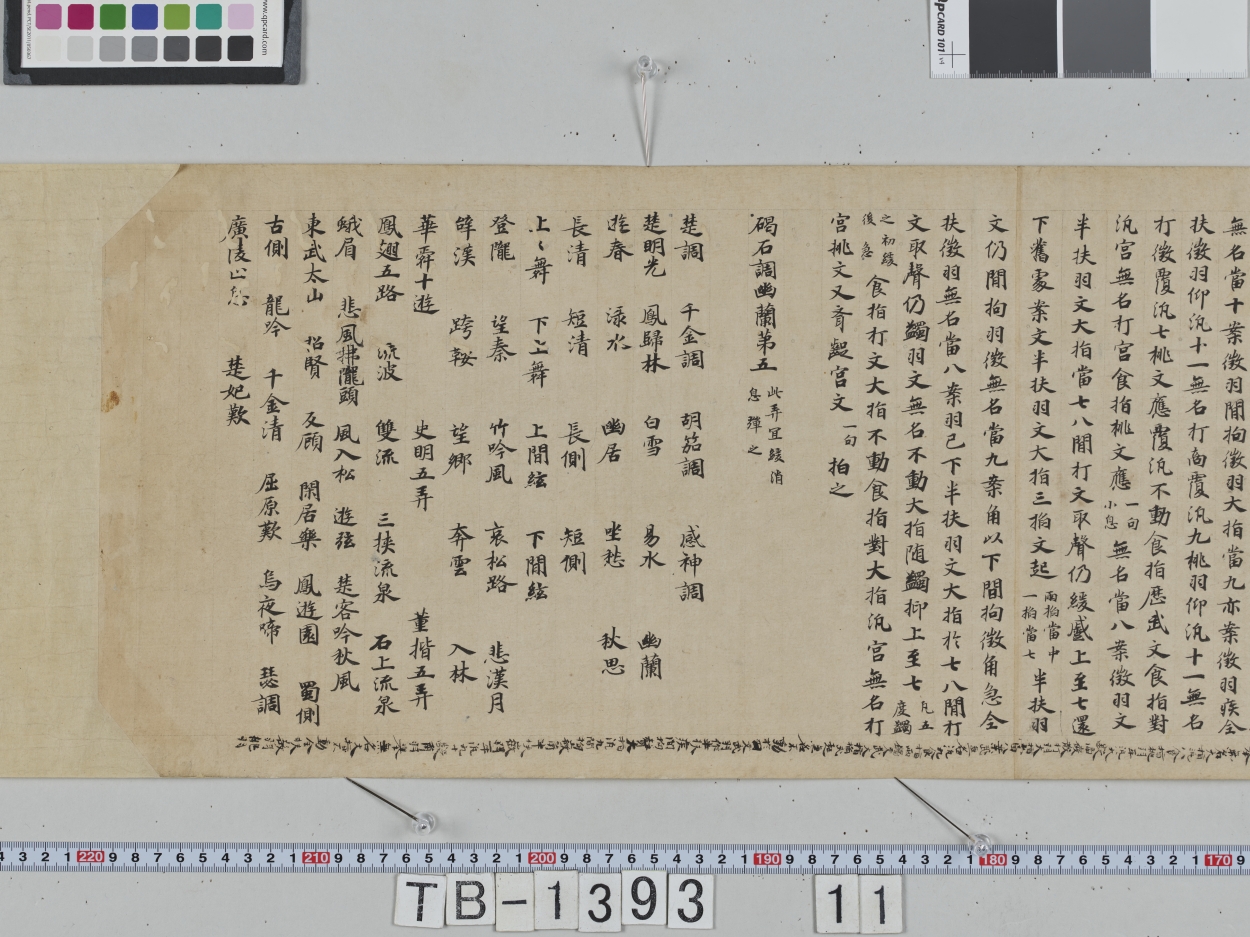 無名當十案徵羽間拘徵羽大指當九亦案徵羽疾全
扶徵羽仰汎十一無名打商覆汎九桃羽仰汎十一無名
打徵覆汎七桃文應覆汎不動食指歷武文食指對
汎宮無名打宮食指桃文應一句小息無名當八案徵羽文
半扶羽文大指當七八間打文取聲仍緩蹙上至七還
下舊處案文半扶羽文大指三拍文起兩拍當中一拍當七半扶羽
文仍間拘羽徵無名當九案角以下間拘徵角急全
扶徵羽無名當八案羽已下半扶羽文大指於七八間打
文取聲仍蠲羽文無名不動大指随蠲抑上至七凡五度蠲
之初緩後急食指打文大指不動食指對大指汎宮無名打
宮桃文又齊歷宮文一句拍之
碣石調幽蘭第五此弄宜緩消息彈之
楚調 千金調 胡笳調 感神調
楚明光 鳳歸林 白雪 易水 幽蘭
遊春 渌水 幽居 坐愁 秋思
長清 短清 長側 短側
上〻舞 下上舞 上間絃 下間絃
登隴 望秦 竹吟風 哀松路 悲漢月
辞漢 跨鞍 望鄉 奔雲 入林
華舜十遊 史明五弄 董揩五弄
鳳翅五路 流波 雙流 三挾流泉 石上流泉
峨眉 悲風拂隴頭 風入松 遊弦 楚客吟秋風
東武太山 招賢 反顧 閑居樂 鳳遊園 蜀側
古側 龍吟 千金清 屈原歎 烏夜啼 瑟調
廣陵止息 楚妃歎
CARD 101
www.qpcard.com
4 3 2 1 220 9 8 7 6 5 4 3 2 1 210 9 8 7 6 5 4 3 2 1 200 9 8 7 6 5 4 3 2 1 190 9 8 7 6 5 4 3 2 1 180 9 8 7 6 5 4 3 2 1 170 9
TB-1393 11